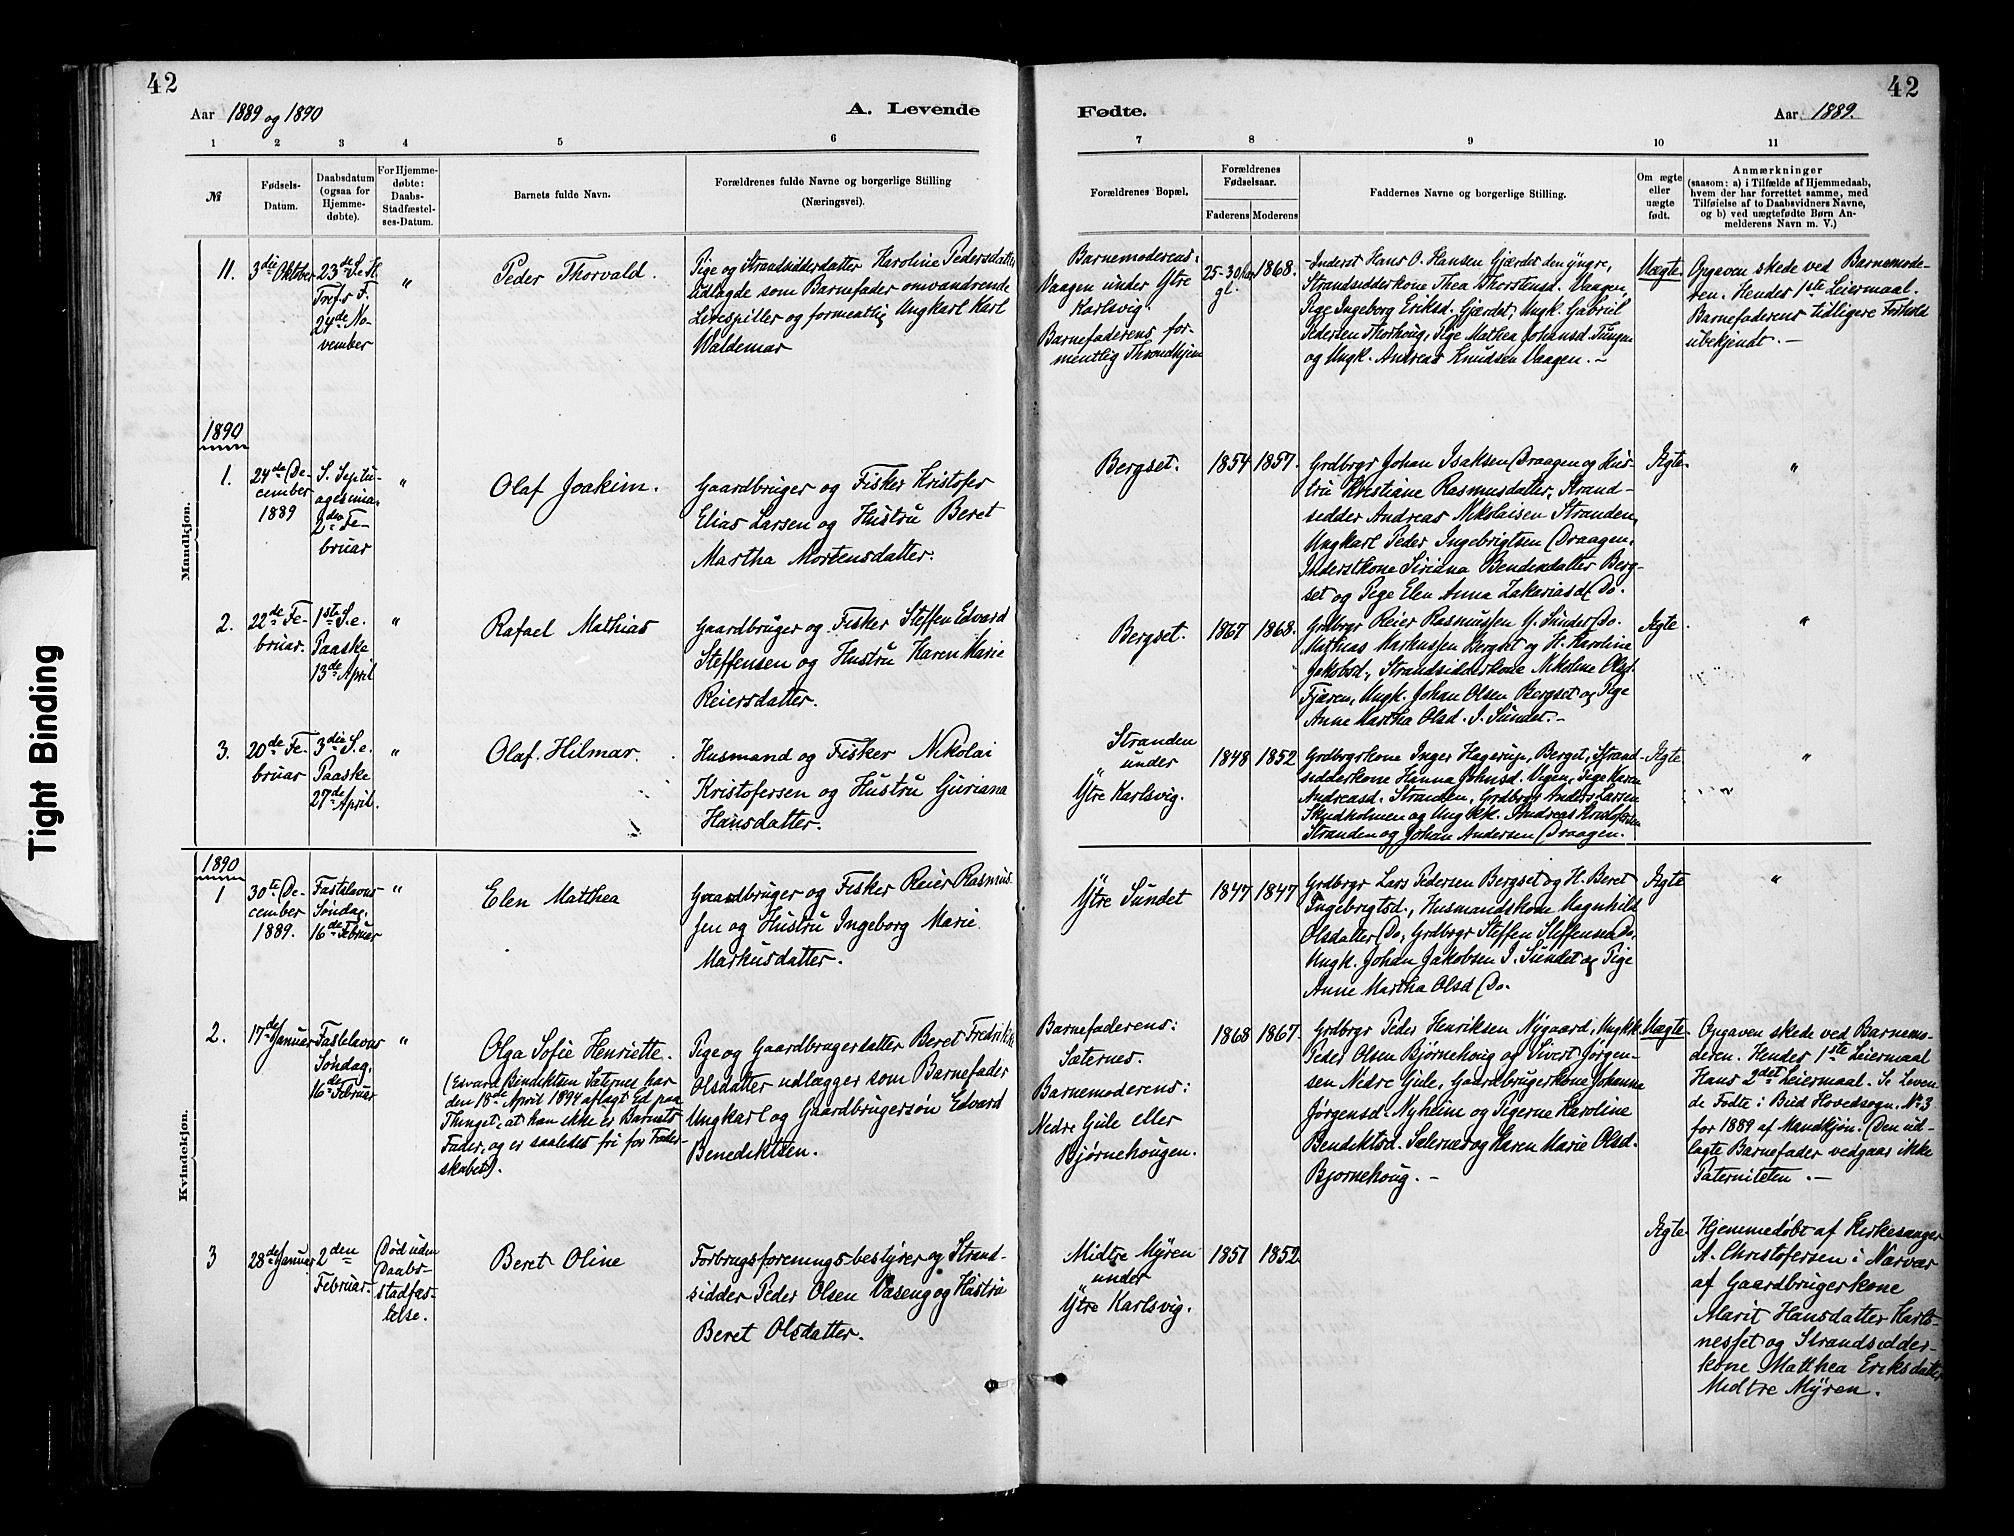 42
Aar 1889 og 1890
A. Levende
1 2 3 4 5 6
№
Fødsels-
Datum.
Daabsdatum
(ogsaa for
Hjemme-
døbte).
For Hjemme-
døbte:
Daabs-
Stadfæstel-
ses-Datum.
Barnets fulde Navn.
Forældrenes fulde Navne og borgerlige Stilling
(Næringsvei).
Mandkjøn.
11.
3die Oktober
23de S. e.
Tref. F.
24de No-
vember
"
Peder Thorvald.
Pige og Strandsidderdatter Karoline Pedersdatter
udlagde som Barnefader omvandrende
Lirespiller og formentlig Ungkarl Karl
Waldemar
1890
1.
24de De-
cember
1889
S. Septu-
agesima
2den Fe-
bruar
"
Olaf Joakim.
Gaardbruger og Fisker Kristofer
Elias Larsen og Hustru Beret
Martha Mortensdatter.
2.
22de Fe-
bruar.
1ste S. e.
Paaske
13de April
"
Rafael Mathias
Gaardbruger og Fisker Steffen Edvard
Steffensen og Hustru Karen Marie
Reiersdatter.
3.
20de Fe-
bruar
3die S. e.
Paaske
27de April.
"
Olaf Hilmar.
Husmand og Fisker Nikolai
Kristofersen og Hustru Guriana
Hansdatter.
Kvindekjøn.
1890
1
30te De-
cember
1889.
Fastelavns
Søndag.
16de Februar
"
Elen Matthea
Gaardbruger og Fisker Reier Rasmus-
sen og Hustru Ingeborg Marie
Markusdatter.
2.
17de Januar
Fastelavns
Søndag.
16de Februar
"
Olga Sofie Henriette.
(Edvard Bendiktsen Sæternes har
den 18de April 1894 aflagt Ed paa
Thinget, at han ikke er Barnets
Fader, og er saaledes fri for Fader-
skabet).
Pige og Gaardbrugerdatter Beret Fredrikke
Olsdatter udlægger som Barnefader
Ungkarl og Gaardbrugersøn Edvard
Benediktsen.
3
28de Januar
2den
Februar.
Død uden
Daabs-
stadfæs-
telse.
Beret Oline
Forbrugsforenings-bestyrer og Strand-
sidder Peder Olsen Vaseng og Hustru
Beret Olsdatter.
42
Fødte.
Aar 1889.
7 8 9 10 11
Forældrenes Bopæl.
Forældrenes
Fødselsaar.
Faderens Moderens
Faddernes Navne og borgerlige Stilling.
Om ægte
eller
uægte
født.
Anmærkninger
(saasom: a) i Tilfælde af Hjemmedaab,
hvem der har forrettet samme, med
Tilføielse af to Daabsvidners Navne,
og b) ved uægtefødte Børn An-
melderens Navn m. V.)
Barnemoderens:
Vaagen under Ytre
Karlsvig.
Barnefaderens for-
mentlig Throndhjem
25-30 Aar
gl.
1868.
Inderst Hans O. Hansen Gjærdet den yngre,
Strandsidderkone Thea Thorstensd. Vaagen,
Pige Ingeborg Eriksd. Gjærdet, Ungk. Gabriel
Pedersen Thorhoug, Pige Mathea Johansd. Tungen
og Ungk. Andreas Knudsen Vaagen. –
Uægte
Opgaven skede ved Barnemode-
ren. Hendes 1ste Leiermaal.
Barnefaderens tidligere Forhold
ubekjendt. –
Bergset.
1854 1857.
Grdbrgr Johan Isaksen Draagen og Hus-
tru Kristiane Rasmusdatter, Strand-
sidder Andreas Nikolaisen Stranden,
Ungkarl Peder Ingebrigtsen Draagen,
Inderstkone Siriana Bendixdatter Berg-
set og Pige Elen Anna Zakariasd Do.
Ægte
"
Bergset.
1867 1868.
Grdbrgr Reier Rasmussen Y. Sundet Do.
Mathias Markussen Bergset og H. Karoline
Jakobsd., Strandsidderkone Nikoline Olsd.
Fjæren, Ungk. Johan Olsen Bergset og Pige
Anne Martha Olsd. I. Sundet. –
Ægte
"
Stranden
under
Ytre Karlsvig.
1848 1852
Grdbrgrkone Inger Hagerup, Berget, Strand-
sidderkone Hanna Johnsd. Vegen, Pige Karen
Andreasd. Stranden, Grdbrgr Anders Larsen
Skudholmen og Ungkk. Andreas Kristofersen
Stranden og Johan Andersen Draagen.
Ægte
"
Ytre Sundet
1847 1847
Grdbrgr Lars Pedersen Bergset og H. Beret
Ingebrigtsd., Husmandskone Magnhild
Olsdatter Do, Grdbrgr Steffen Steffensen Do.
Ungk. Johan Jakobsen I. Sundet og Pige
Anne Martha Olsd Do.
Ægte
"
Barnefaderens:
Sæternes.
Barnemoderens:
Nedre Gule eller
Bjørnehougen.
1868 1867.
Grdbrgr Peder Henriksen Nygaard, Ungkk.
Peder Olsen Bjørnehoug og Sivert Jørgen-
sen Nedre Gule, Gaardbrugerkone Johanna
Jørgensd. Nyheim og Pigerne Karoline
Bendiktsd. Sæternes og Karen Marie Olsd.
Bjornehoug. –
Uægte
Opgaven skede ved Barnemo-
deren. Hendes 1ste Leiermaal
Hans 2det Leiermaal. Se Leven-
de Fødte i Bud Hovedsogn. No 3
for 1889 af Mandkjøn. (Den ud-
lagte Barnefader vedgaar ikke
Paterniteten. –
Midtre Myren
under
Ytre Karlsvig.
1851 1852
Ægte
Hjemmedøbt af Kirkesanger
A. Christofersen i Nærvær
af Gaardbrugerkone
Marit Hansdatter Karls-
nesset og Strandsidder-
kone Matthea Eriksdatter
Midtre Myren.
Tight Binding